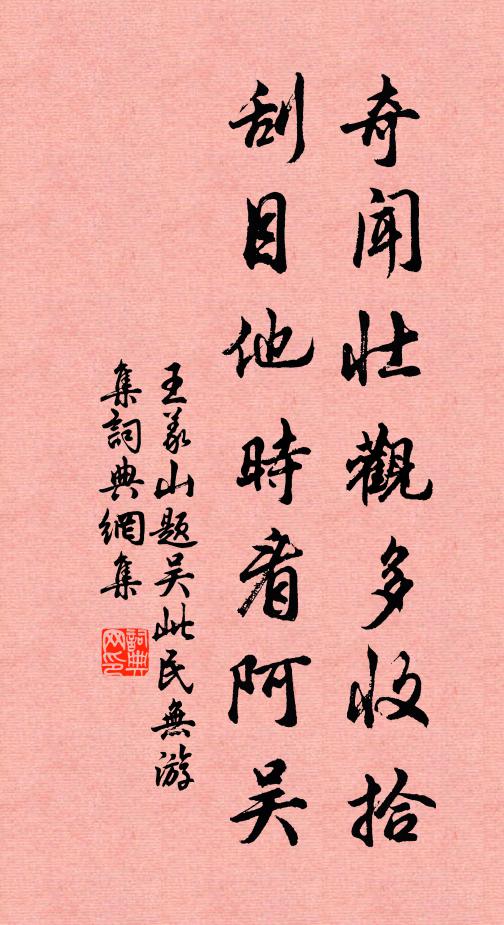 奇聞壯觀多收拾
刮目他時看阿吳
王義山題吳此民無游
集詞典網集
詞典網印